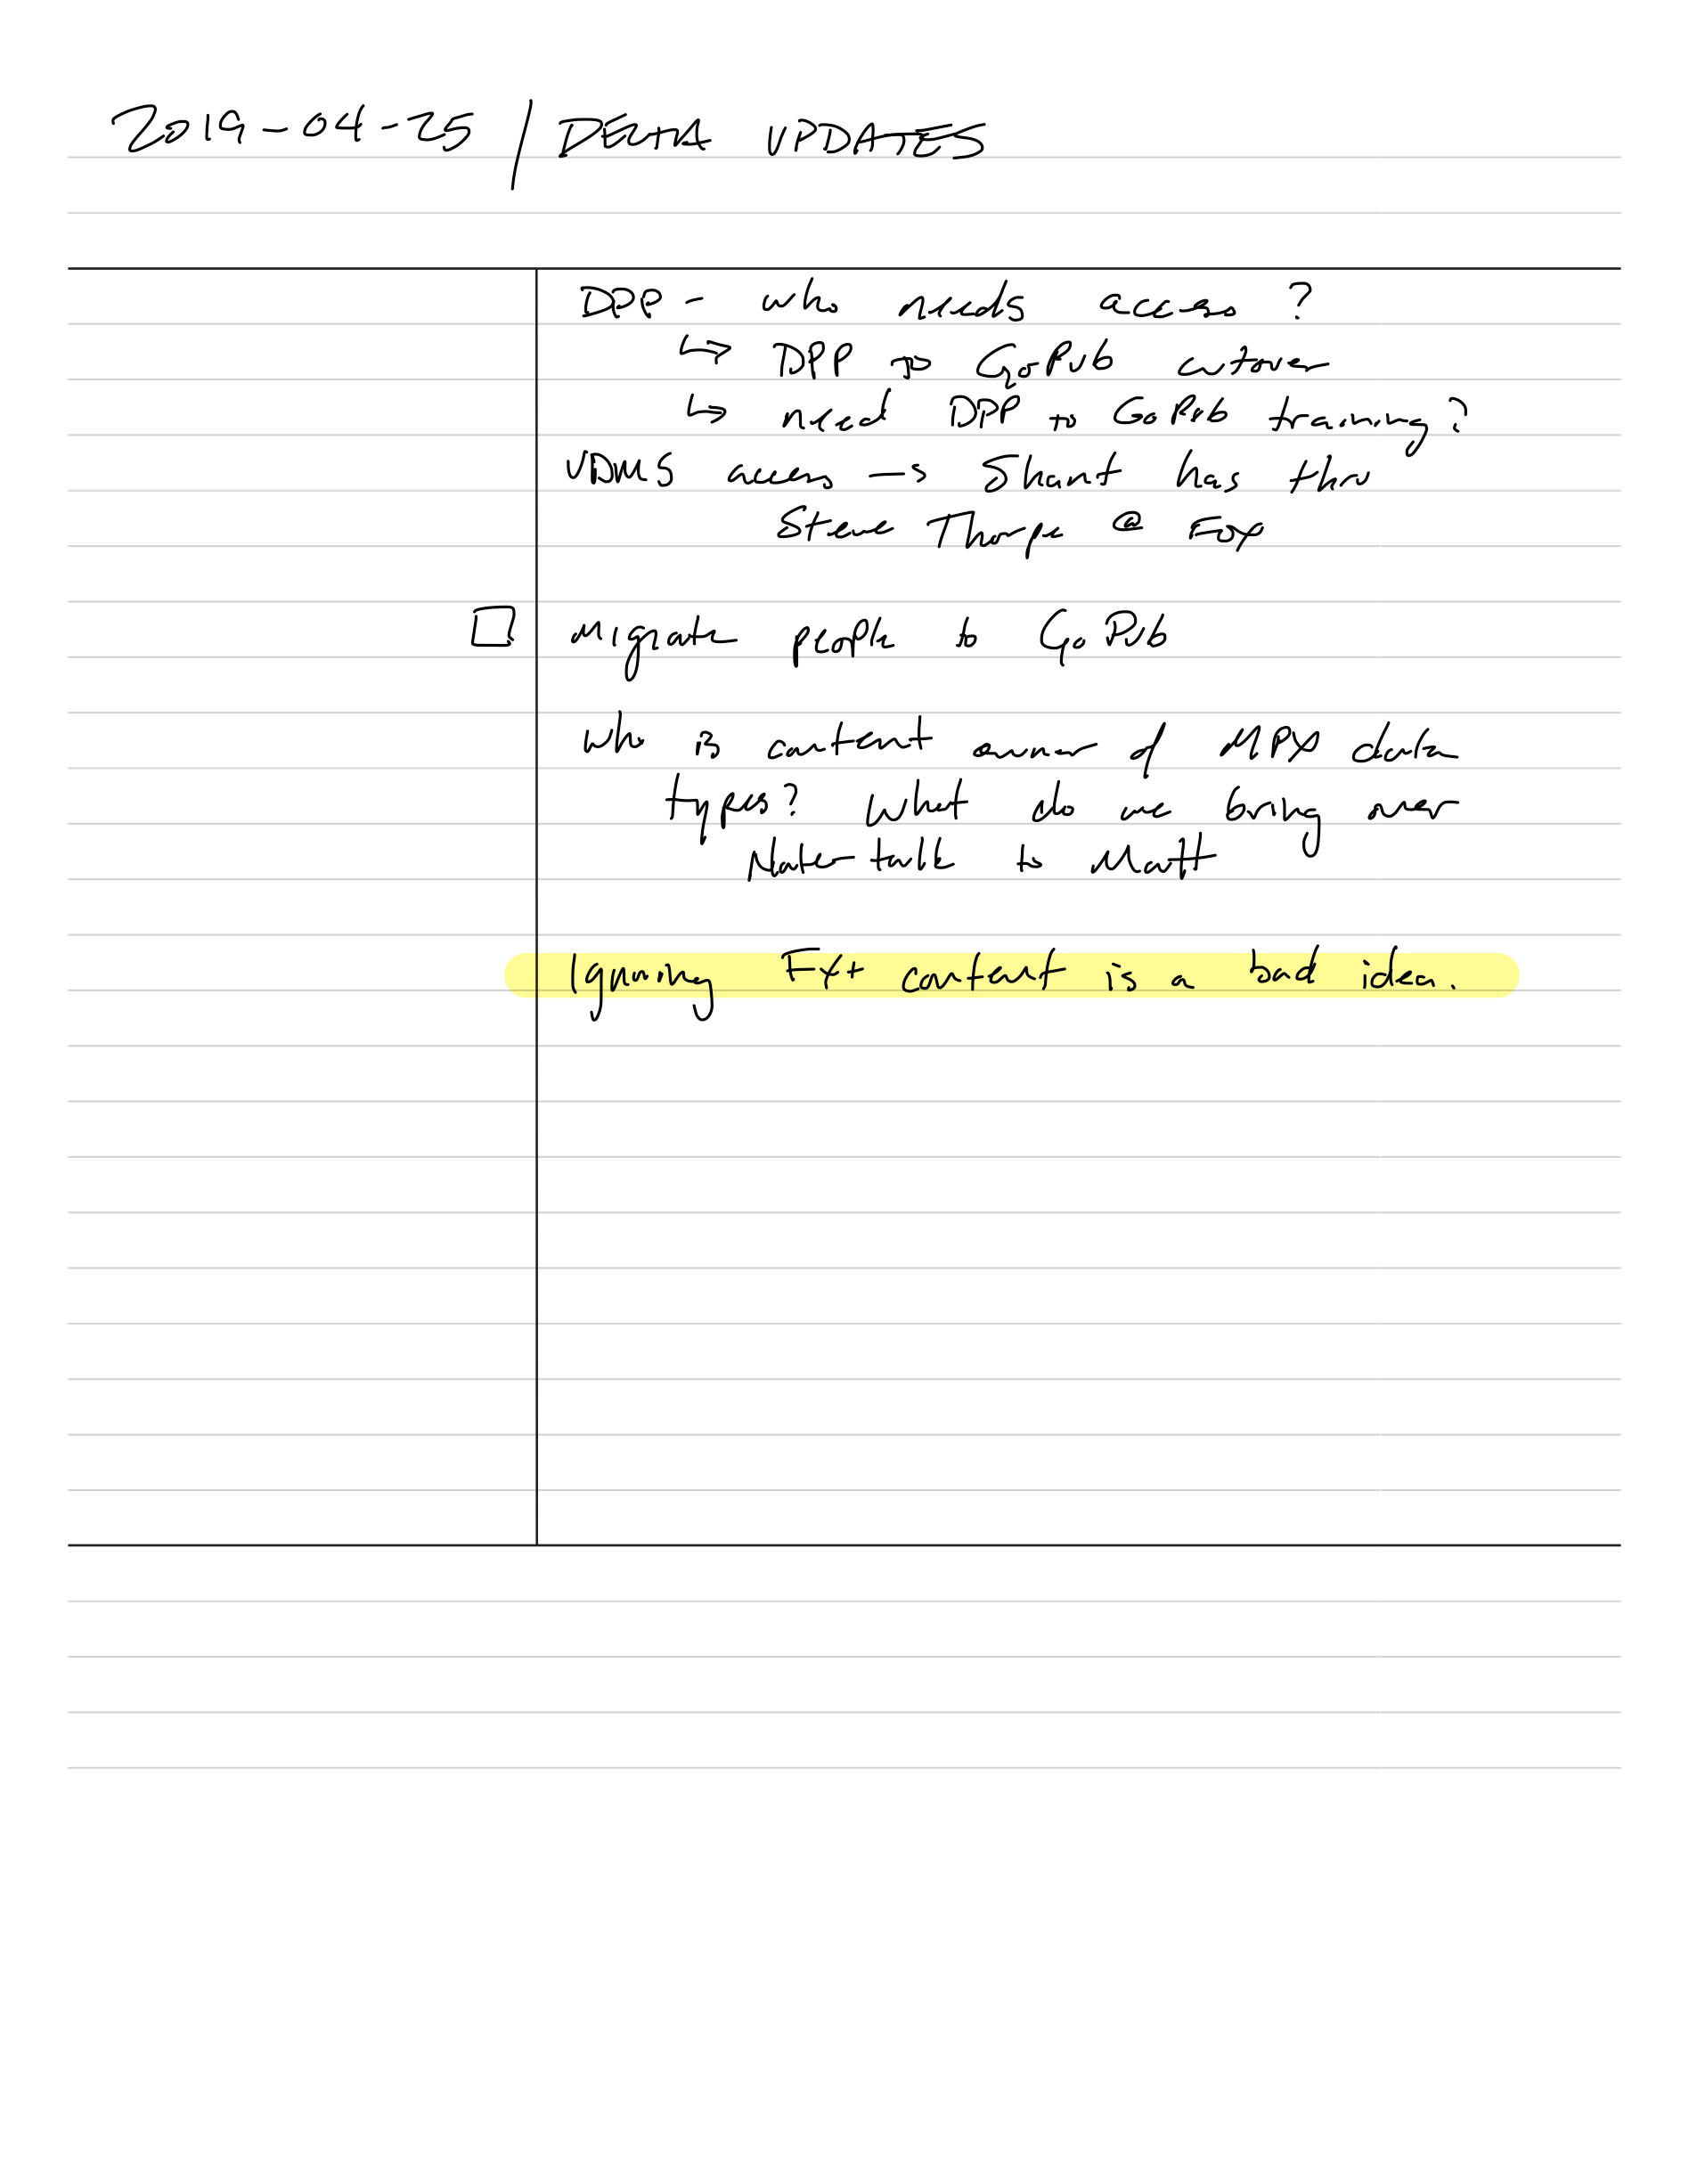 2019-04-25 / DELTA UPDATES
DPP - who needs access?
↳ DPP to GoPub cutover
↳ need DPP to GoPub training?
VDMS access → Shant has thru
Steve Thorpe @ Fox
☐ Migrate people to GoPub
Who is content owner of MPX data
types? What do we bring over
Nate talk to Matt
Ignoring FX+ content is a bad idea.